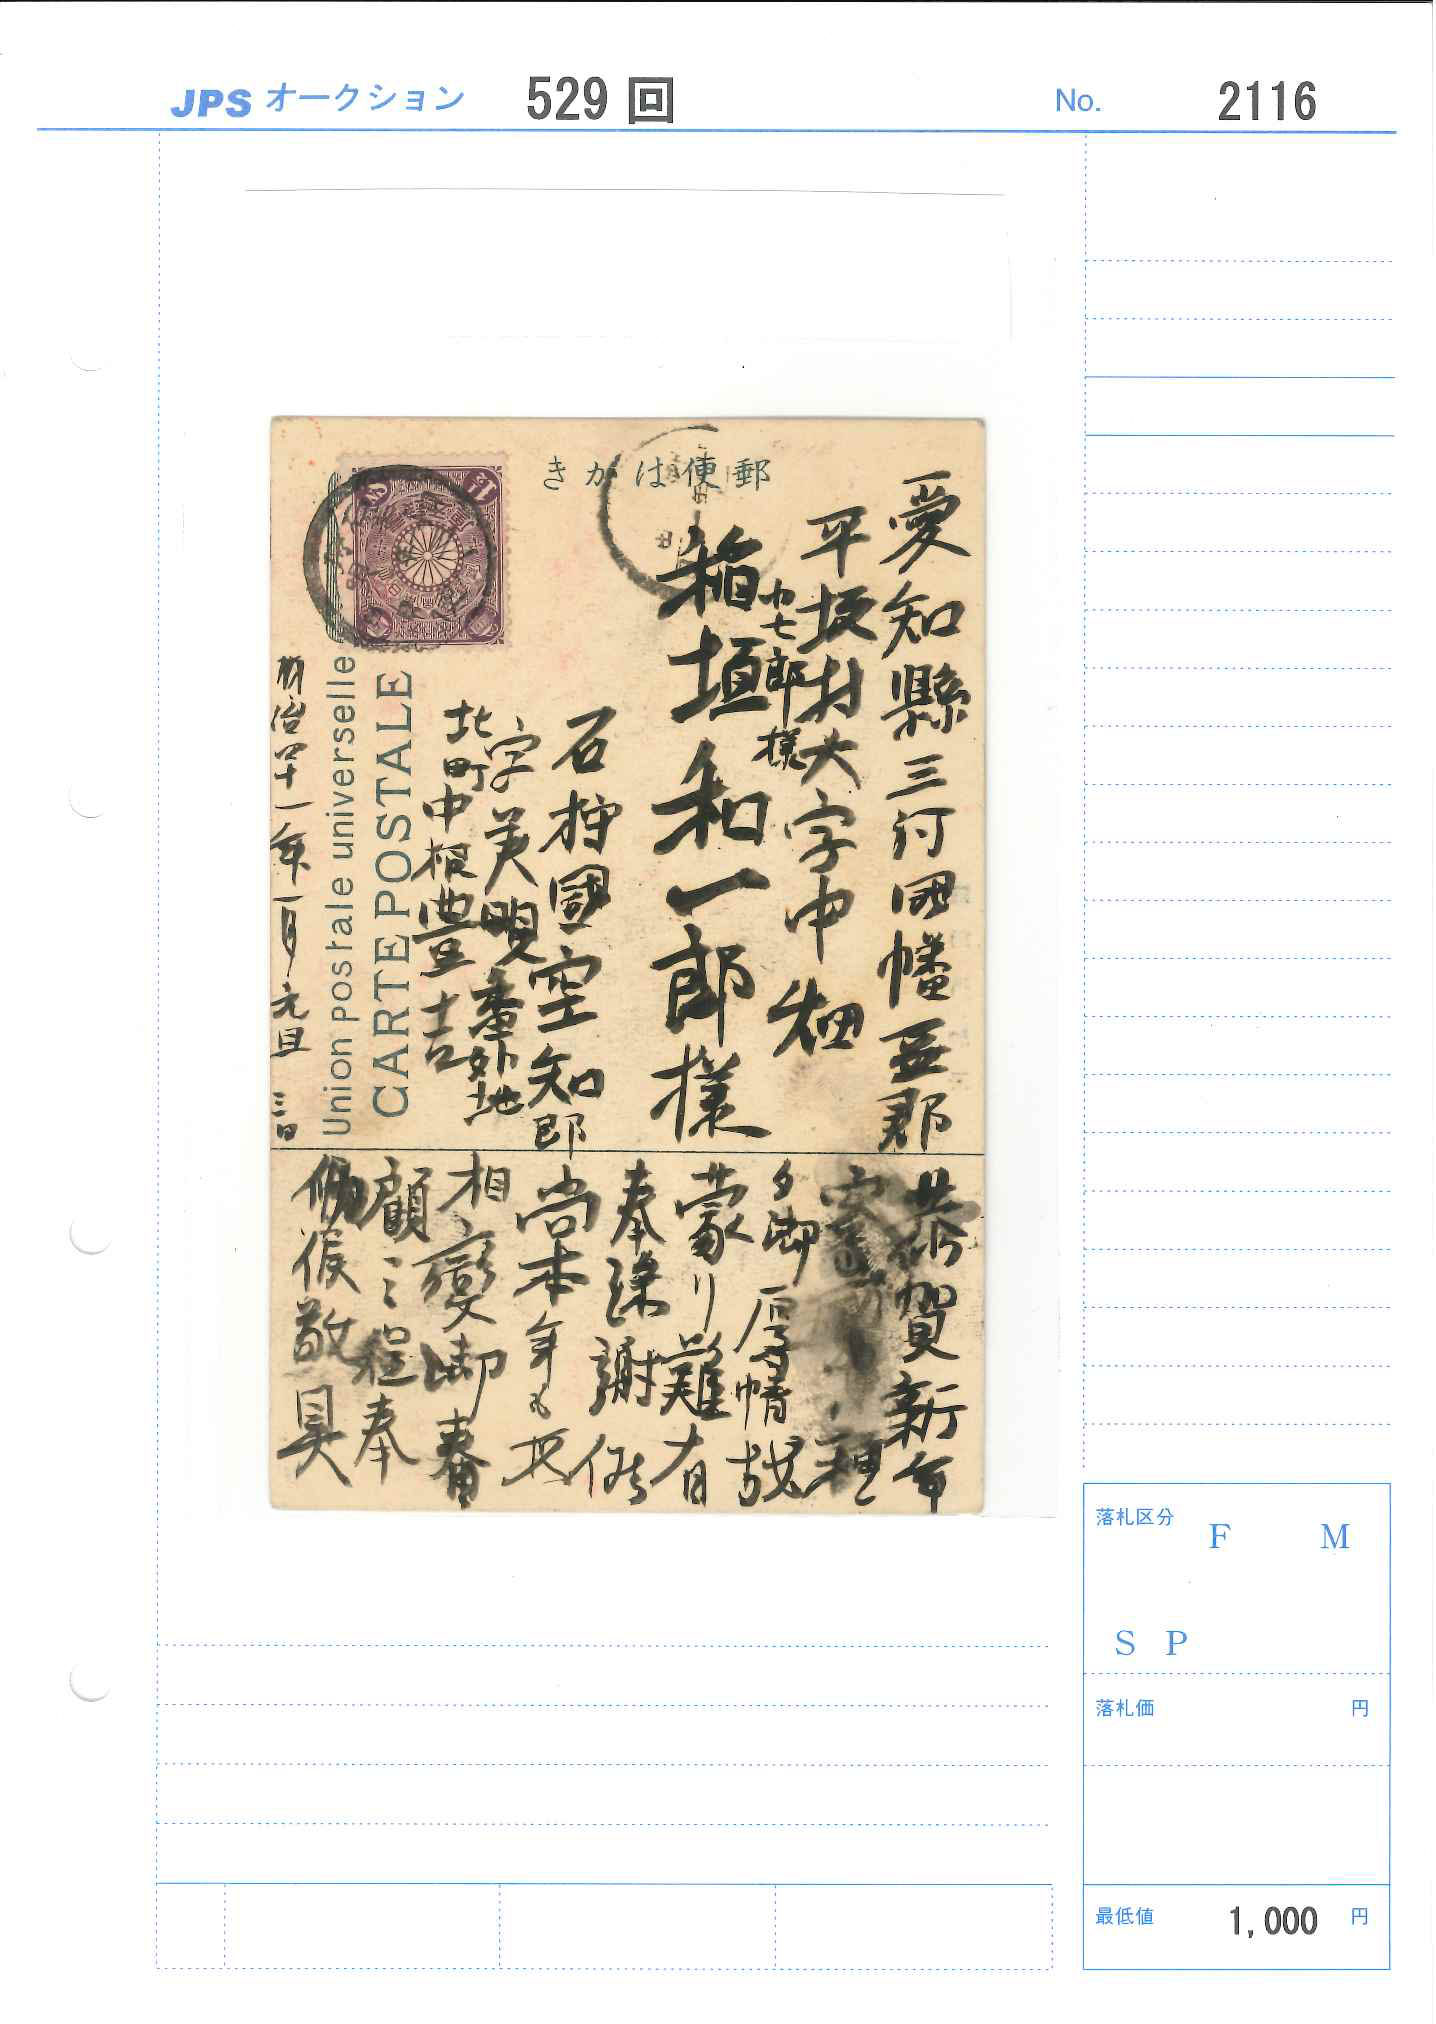 JPS オークション 529 回 No. 2116
郵便はがき
愛知縣三河國幡豆郡
平坂村大字中畑
七郎様
稲垣和一郎様
石狩國空知郡
字美唄番外地
北町中根豊吉
CARTE POSTALE
Union postale universelle
明治四十一年一月元旦
三日
恭賀新年
御厚情
蒙リ難有
奉深謝候
尚本年も
相変御眷
顧之程奉
敬具
落札区分
F M
S P
落札価 円
最低値 1,000 円